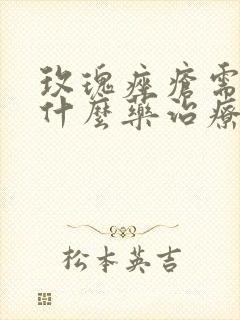 玫瑰痤瘡需
什麼藥治療
松本英吉